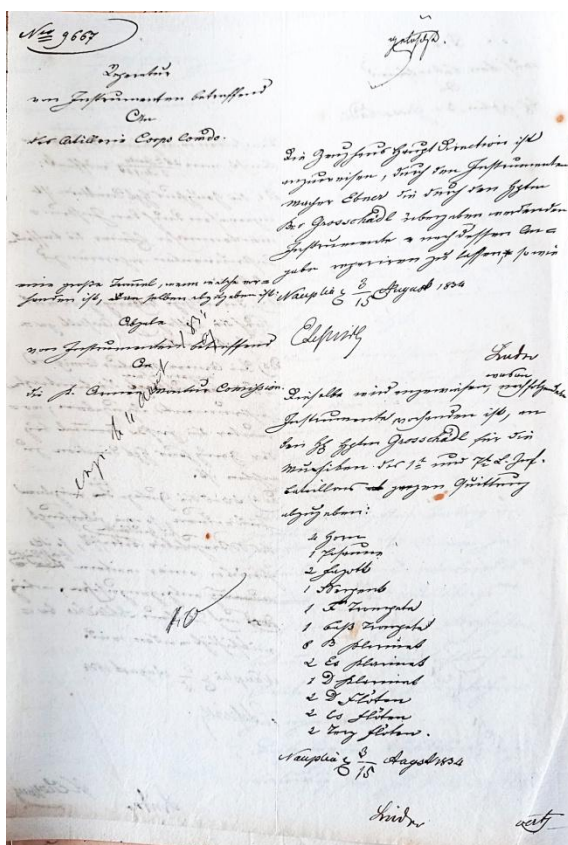 Nro 9667
Reparatur
von Instrumenten betreffend
An
das Artillerie Corps Comdo.
Die Zeughaus Haupt Direction ist
anzuweisen, durch den Instrumenten
macher Ebner die durch den Hptm
Grosschädl übergeben werdenden
Instrumente nach dessen An=
gabe repariren zu lassen, sowie
eine große Trommel, wenn welche vor=
handen ist, demselben abzugeben ist.
Nauplia 3/15 August 1834
Abgabe
von Instrumenten betreffend
An
die Armee Montur Comission.
Dieselbe wird angewiesen,
Instrumente vorhanden ist, an
den Hptm Grosschädl für die
Musiken des 1t und 7t L. Inf.
Bataillons gegen Quittung
abzugeben:
4 Horn
1 Posaune
2 Fagotts
1 Serpent
1 Trompete
1 Baß Trompete
8 B Klarinet
2 Es Klarinet
1 D Klarinet
2 D Flöten
2 Es Flöten
2 Terz Flöten.
Nauplia 3/15 Augst 1834